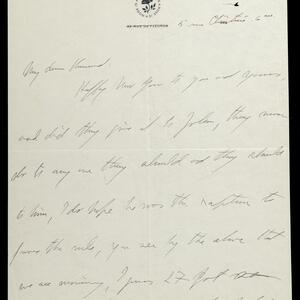 5 rue Christine 6me
My dear Kimmel,
Happy New Year to you and yours,
and did they give it to John, they never
do to any one they should and they should
to him, I do hope he was the exception to
prove the rule, you see by the above that
we are moving, I guess 27 got